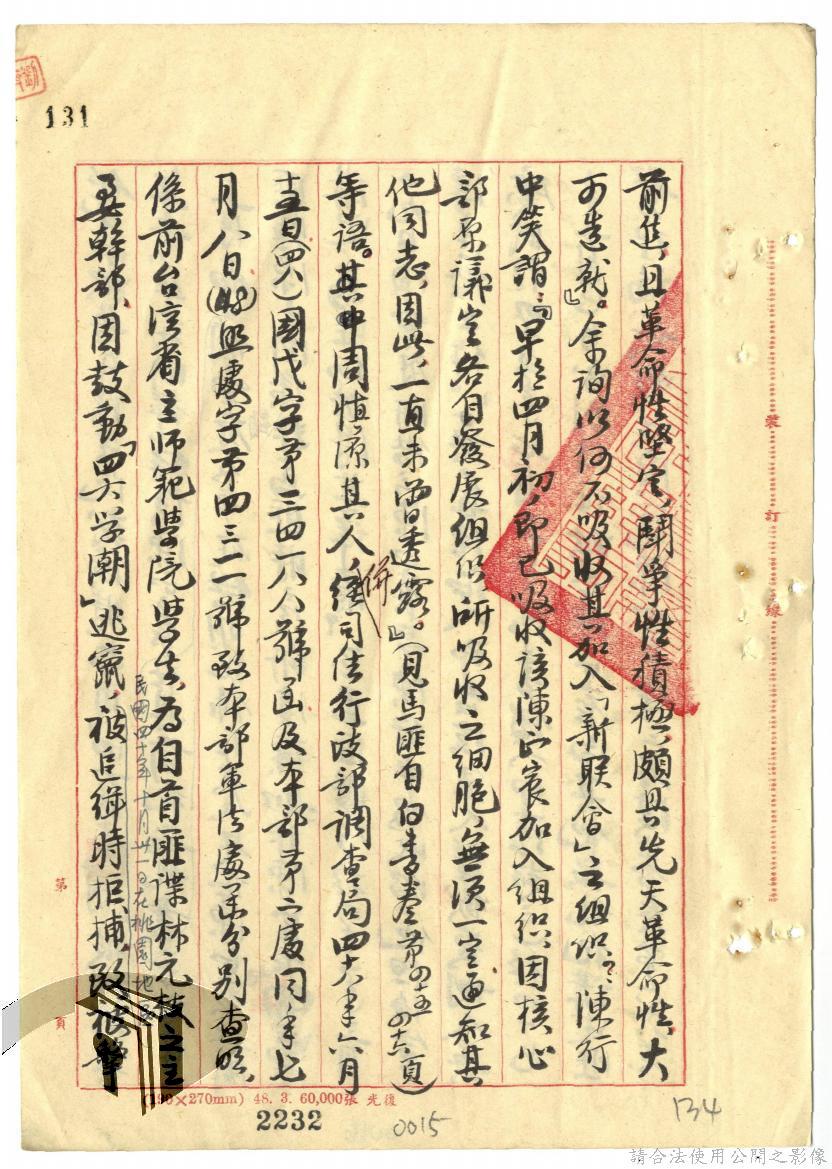 131
前進，且革命性堅定，鬥爭性積極，頗具先天革命性，大
可造就』。余詢以何不吸收其加入「新联會」之組织？陳行
中笑謂：『早於四月初，即已吸收該陳正宸加入組织，因核心
部原議定各自發展組织，所吸收之细胞，無須一定通知其
他同志，因此，一直未曾透露。』（見馬匪自白書卷第四五四六頁）
等語。其中周慎源其人，經司法行政部調查局四十八年六月
併
十五日（四八）國戊字第三四一八八號函及本部第二處同年七
月八日（48）照處字第四三二一號致本部軍法處函分別查明，
係前台湾省立師範學院學生，為自首匪谍林元枝之主
要幹部，因鼓動「四六学潮」逃竄，被追缉時拒捕，致被擊
民國四十年十月卅一日在桃園地區
裝
訂
線
第
頁
(190×270mm) 48. 3. 60,000張 光復
2232
0015
134
請合法使用公開之影像